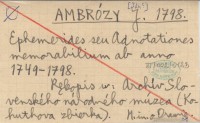 [241]
AMBRÓZY J. 1798.
Ephemerides seu Adnotationes
memorabilium ab anno
1749-1798.
Rkopis v. Archív Slo-
venského národného múzea (Ko-
huthova zbierka).